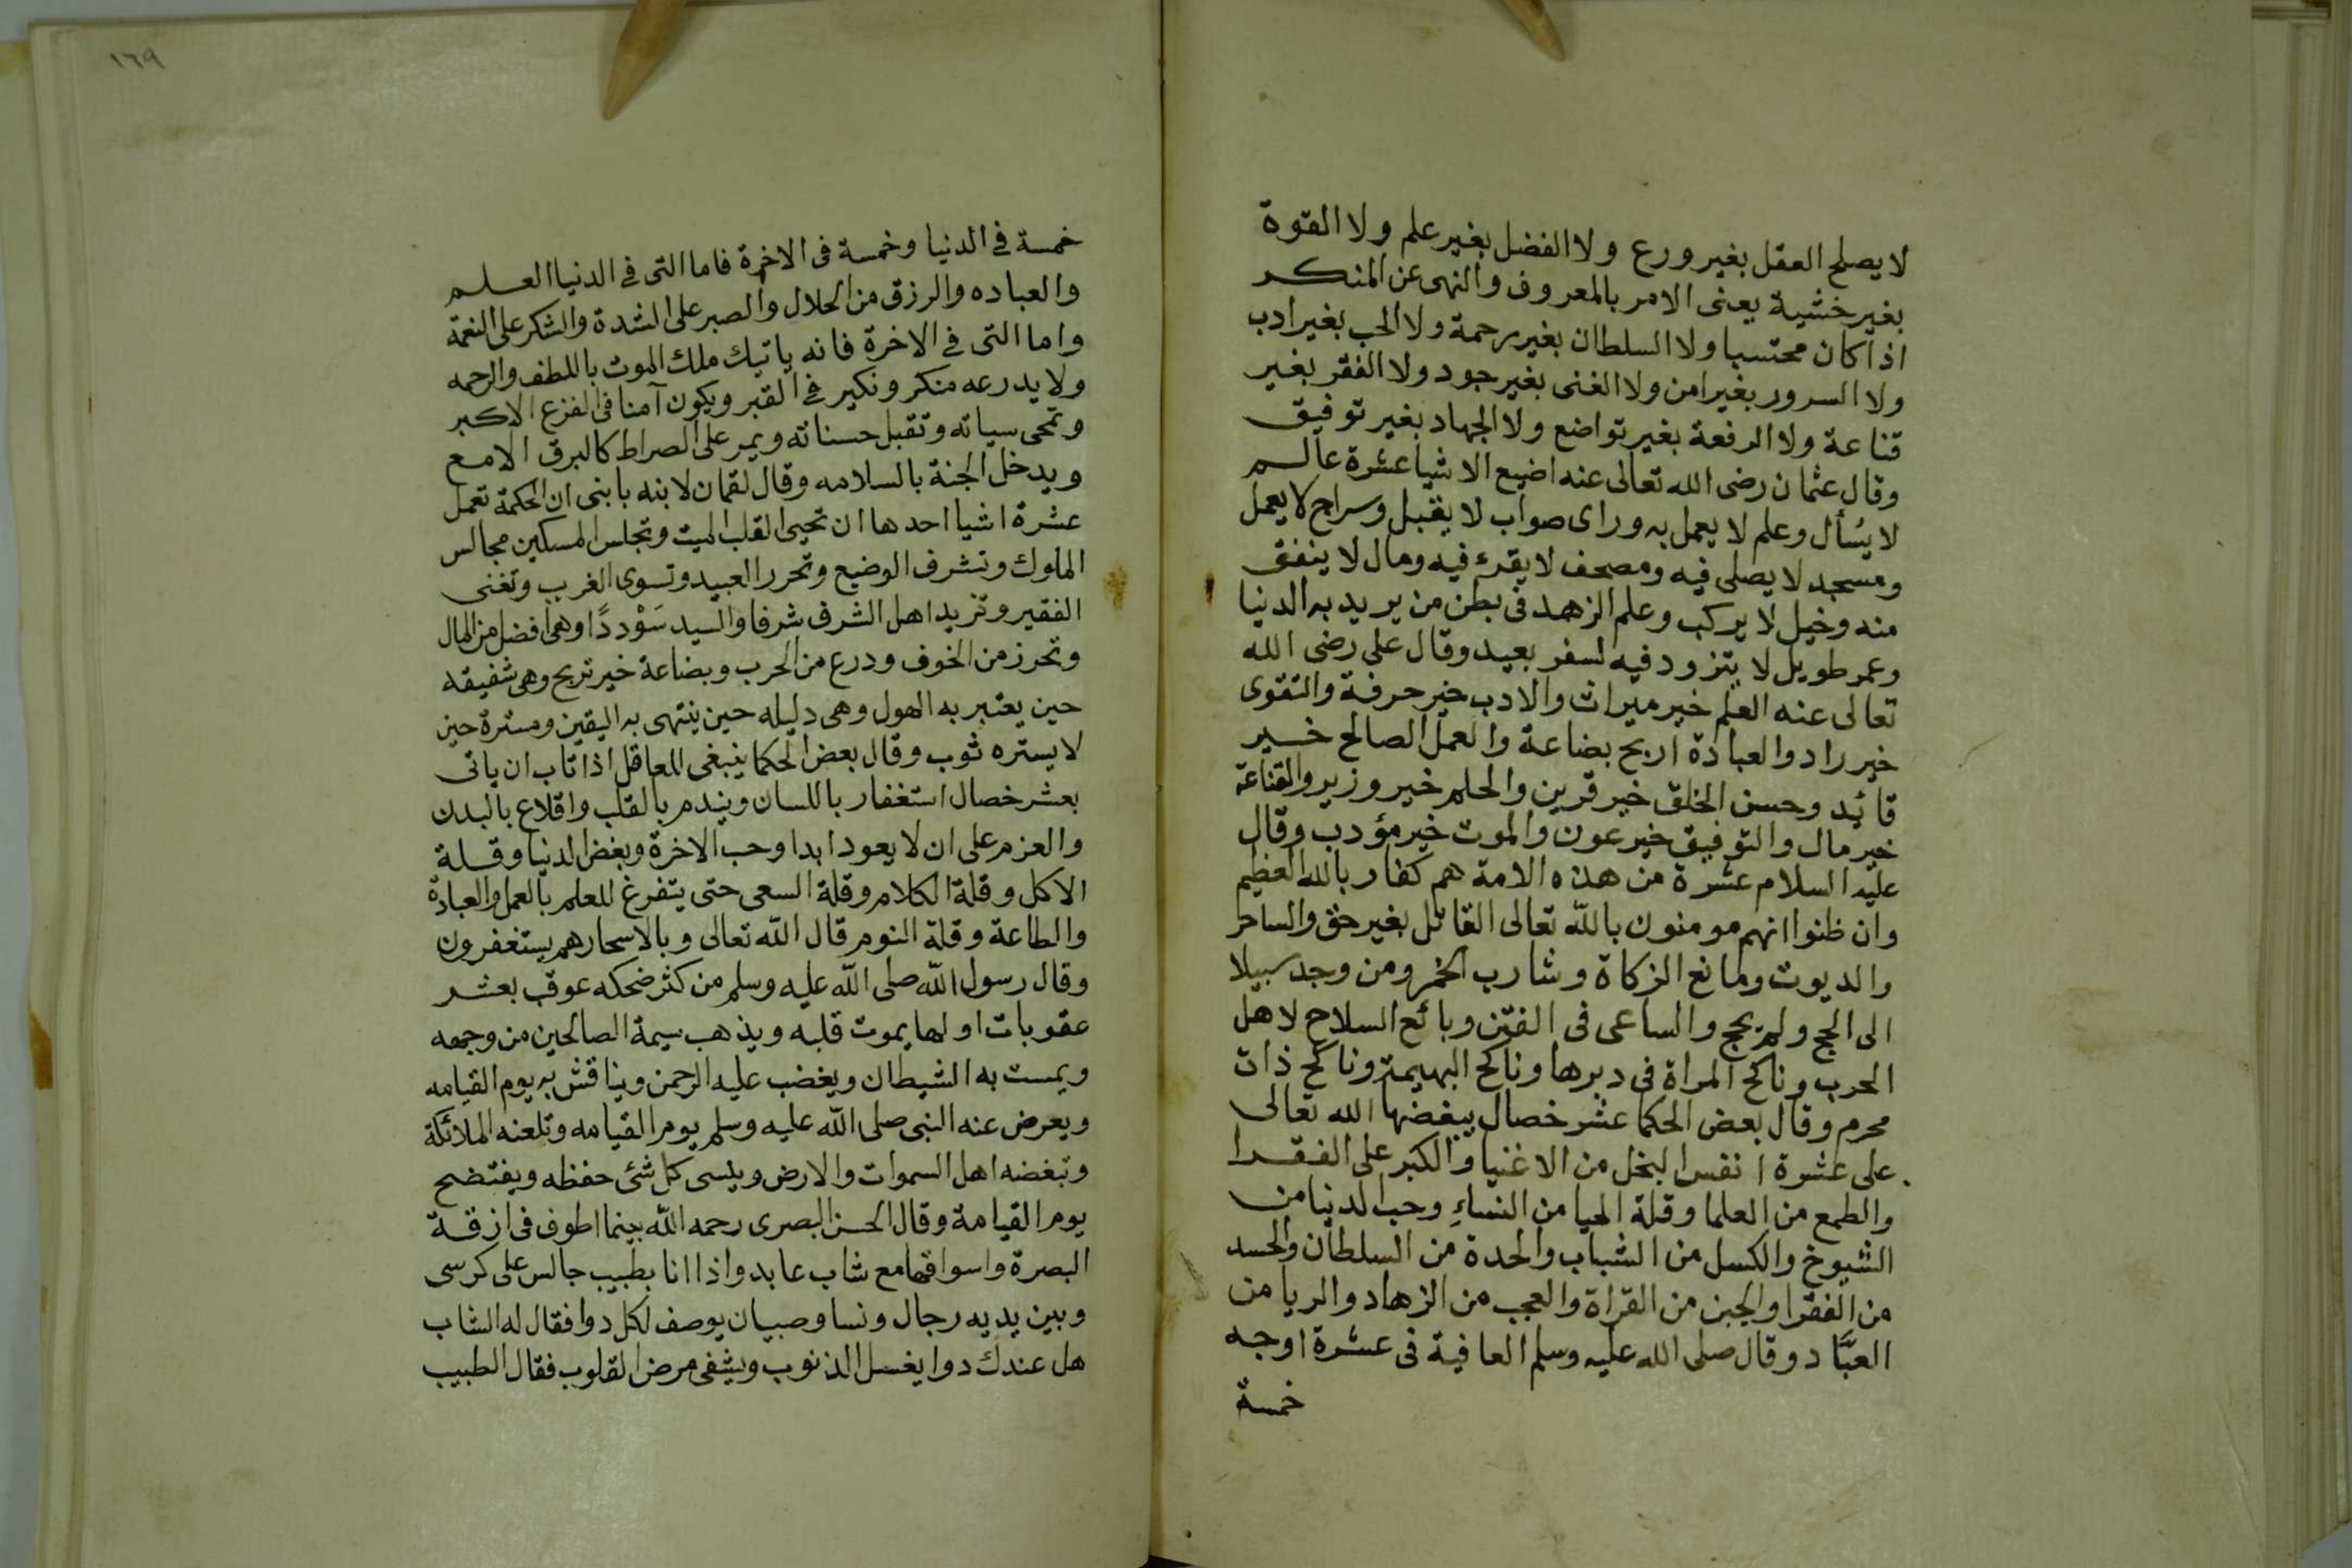 لا يصلح العقل بغير ورع ولا الفضل بغير علم ولا القوة
بغير خشية يعنى الامر بالمعروف والنهى عن المنكر
اذا كان محتسبا ولا السلطان بغير رحمة ولا الحب بغير ادب
ولا السرور بغير امن ولا الغنى بغير جود ولا الفقر بغير
قناعة ولا الرفعة بغير تواضع ولا الجهاد بغير توفيق
وقال عثمان رضى الله تعالى عنه اضيع الاشيا عشرة عالم
لا يُسأل وعلم لا يعمل به وراى صواب لا يقبل وسراج لا يعمل
ومسجد لا يصلى فيه ومصحف لا يقرء فيه ومال لا ينفق
منه وخيل لا يركب وعلم الزهد فى بطن من يريد به الدنيا
وعمر طويل لا يتزود فيه لسفر بعيد وقال على رضى الله
تعالى عنه العلم خير ميراث والادب خير حرفة والتقوى
خير زاد والعبادة اربح بضاعة والعمل الصالح خير
قائد وحسن الخلق خير قرين والحلم خير وزير والقناعة
خير مال والتوفيق خير عون والموت خير مؤدب وقال
عليه السلام عشرة من هذه الامة هم كفار بالله العظيم
وان ظنوا انهم مومنون بالله تعالى القاتل بغير حق والساحر
والديوث ومانع الزكاة وشارب الخمر ومن وجد سبيلا
الى الحج ولم يحج والساعى فى الفتن وبائع السلاح لاهل
الحرب وناكح المراة فى دبرها وناكح البهيمة وناكح ذات
محرم وقال بعض الحكما عشر خصال يبغضها الله تعالى
على عشرة انفس البخل من الاغنيا والكبر على الفقرا
والطمع من العلما وقلة الحيا من النساءِ وحب الدنيا من
الشيوخ والكسل من الشباب والحدة من السلطان والحسد
من الفقرا والجبن من القراة والعجب من الزهاد والريا من
العبَّاد وقال صلى الله عليه وسلم العافية فى عشرة اوجه
خمسة
١٦٩
خمسة فى الدنيا وخمسة فى الاخرة فاما التى فى الدنيا العلم
والعباده والرزق من الحلال والصبر على الشدة والشكر على النعمة
واما التى فى الاخرة فانه ياتيك ملك الموت باللطف والرحمه
ولا يدرعه منكر ونكير فى القبر ويكون آمنا فى الفزع الاكبر
وتمحى سياته وتقبل حسناته ويمر على الصراط كالبرق الامع
ويدخل الجنة بالسلامه وقال لقمان لابنه يا بنى ان الحكمة تعمل
عشرة اشيا احدها ان تحيى القلب الميت وتجلس المسكين مجالس
الملوك وتشرف الوضيع وتحرر العبيد وتسوى الغرب وتغنى
الفقير وتزيد اهل الشرف شرفا والسيد سَوْددًا وهى افضل من المال
وتحرز من الخوف ودرع من الحرب وبضاعة خير تربح وهى شفيقه
حين يعتبر به الهول وهى دليله حين ينتهى به اليقين ومسترة حين
لا يستره ثوب وقال بعض الحكما ينبغى للعاقل اذا تاب ان ياتى
بعشر خصال استغفار باللسان ويندم بالقلب واقلاع بالبدن
والعزم على ان لا يعود ابدا وحب الاخرة وبغض الدنيا وقلة
الاكل وقلة الكلام وقلة السعى حتى يتفرغ للعلم بالعمل والعبادة
والطاعة وقلة النوم قال الله تعالى وبالاسحار هم يستغفرون
وقال رسول الله صلى الله عليه وسلم من كثر ضحكه عوقب بعشر
عقوبات اولها يموت قلبه ويذهب سيمة الصالحين من وجهه
ويمست به الشيطان ويغضب عليه الرحمن ويناقش به يوم القيامه
ويعرض عنه النبى صلى الله عليه وسلم يوم القيامه وتلعنه الملائكة
وتبغضه اهل السموات والارض وينسى كل شئ حفظه ويفتضح
يوم القيامة وقال الحسن البصرى رحمه الله بينما اطوف فى ازقة
البصرة واسواقها مع شاب عابد واذا انا بطبيب جالس على كرسى
وبين يديه رجال ونسا وصبيان يوصف لكل دوا فقال له الشاب
هل عندك دوا يغسل الذنوب ويشفى مرض القلوب فقال الطبيب